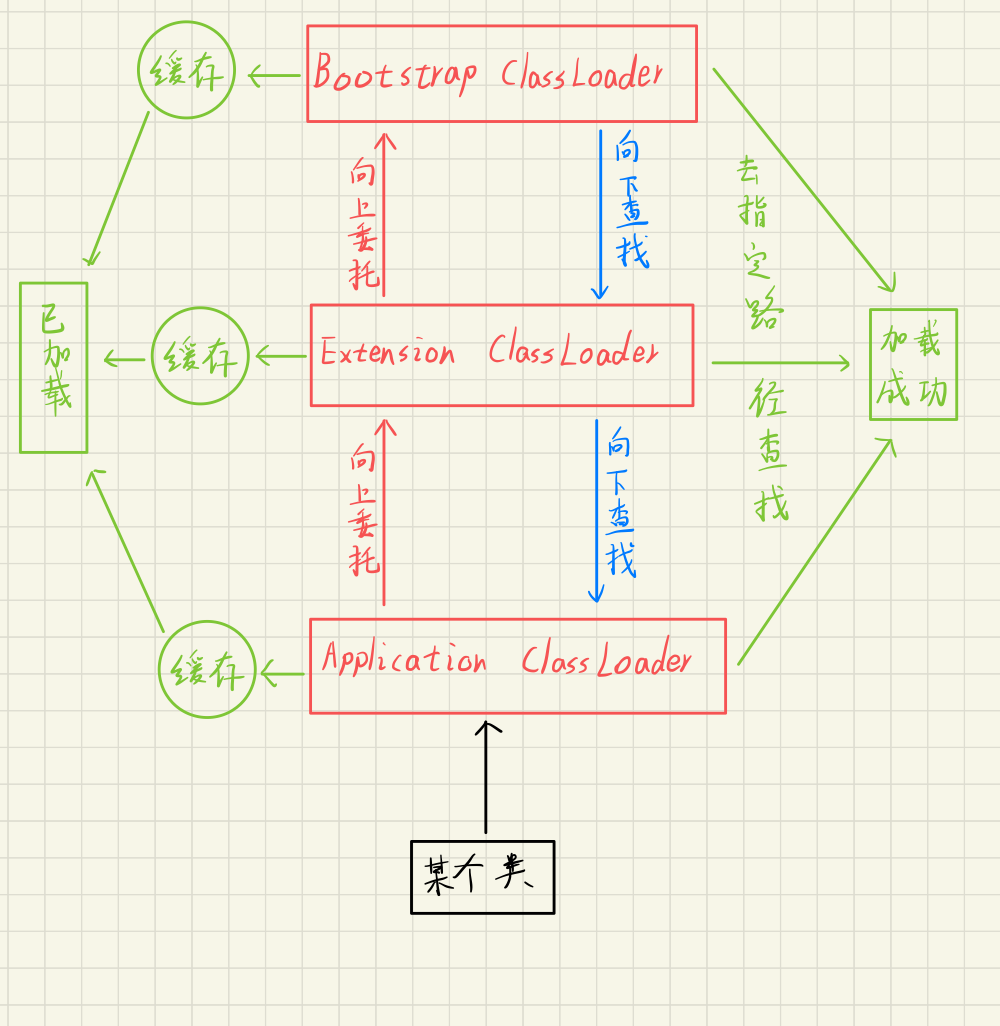 缓存
Bootstrap ClassLoader
向上委托
向下查找
去指定路径查找
已加载
缓存
Extension ClassLoader
加载
成功
向上委托
向下查找
缓存
Application ClassLoader
某个类